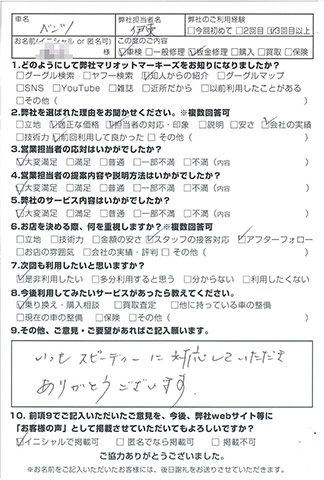 車名 ベンツ 弊社担当者名 伊東 弊社のご利用経験 □今回初めて □2回目 ☑3回目以上
お名前(イニシャル or 匿名可) 今回のご用件 ☑車検 □一般修理 ☑板金修理 □購入 □買取 □保険
1.どのようにして弊社マリオットマーキーズをお知りになりましたか?
□グーグル検索 □ヤフー検索 ☑知人からの紹介 □グーグルマップ
□SNS □YouTube □雑誌 □近所だから □以前利用したことがある
□その他( )
2.弊社を選ばれた理由をお聞かせください。※複数回答可
□立地 ☑適正な価格 ☑担当者の対応・印象 □説明 □安さ ☑会社の実績
□技術力 ☑前回利用して良かった □その他( )
3.営業担当者の応対はいかがでしたか?
☑大変満足 □満足 □普通 □一部不満 □不満(内容 )
4.営業担当者の提案内容や説明方法はいかがでしたか?
☑大変満足 □満足 □普通 □一部不満 □不満(内容 )
5.弊社のサービス内容はいかがでしたか?
☑大変満足 □満足 □普通 □一部不満 □不満(内容 )
6.お店を決める際、何を重視しますか?※複数回答可
□立地 □技術力 □金額の安さ ☑スタッフの接客対応 ☑アフターフォロー
□お店の雰囲気 □会社の実績・評判 □その他( )
7.次回も利用したいと思いますか?
☑是非利用したい □多分利用すると思う □分からない □利用したくない
8.今後利用してみたいサービスがあったら教えてください。
☑乗り換え・購入相談 □買取査定 □他に持っている車の整備
□現在の車の整備 □保険 □その他( )
9.その他、ご意見・ご要望があればご記入願います。
いつもスピーディーに対応していただき
ありがとうございます.
10.前項9でご記入いただいたご意見を、今後、弊社webサイト等に
「お客様の声」として掲載させていただいてもよろしいですか?
☑イニシャルで掲載可 □匿名でなら掲載可 □掲載不可
ご協力ありがとうございました。
※お名前をご記入いただいたお客様には、後日謝礼をお送りさせていただきます。